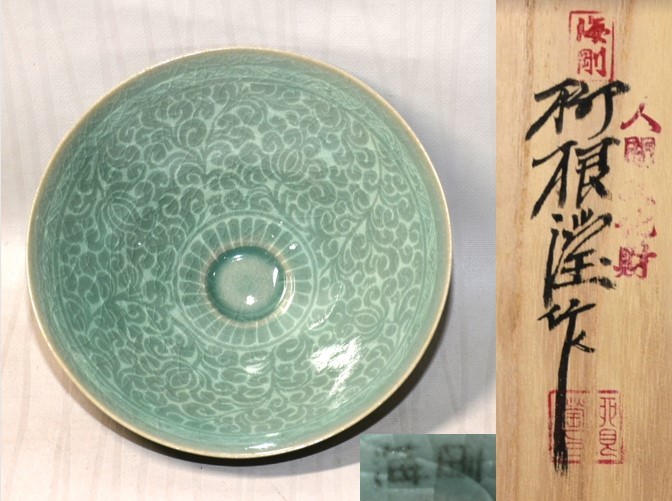 海剛
柳根瀅作
人間文化財
海剛